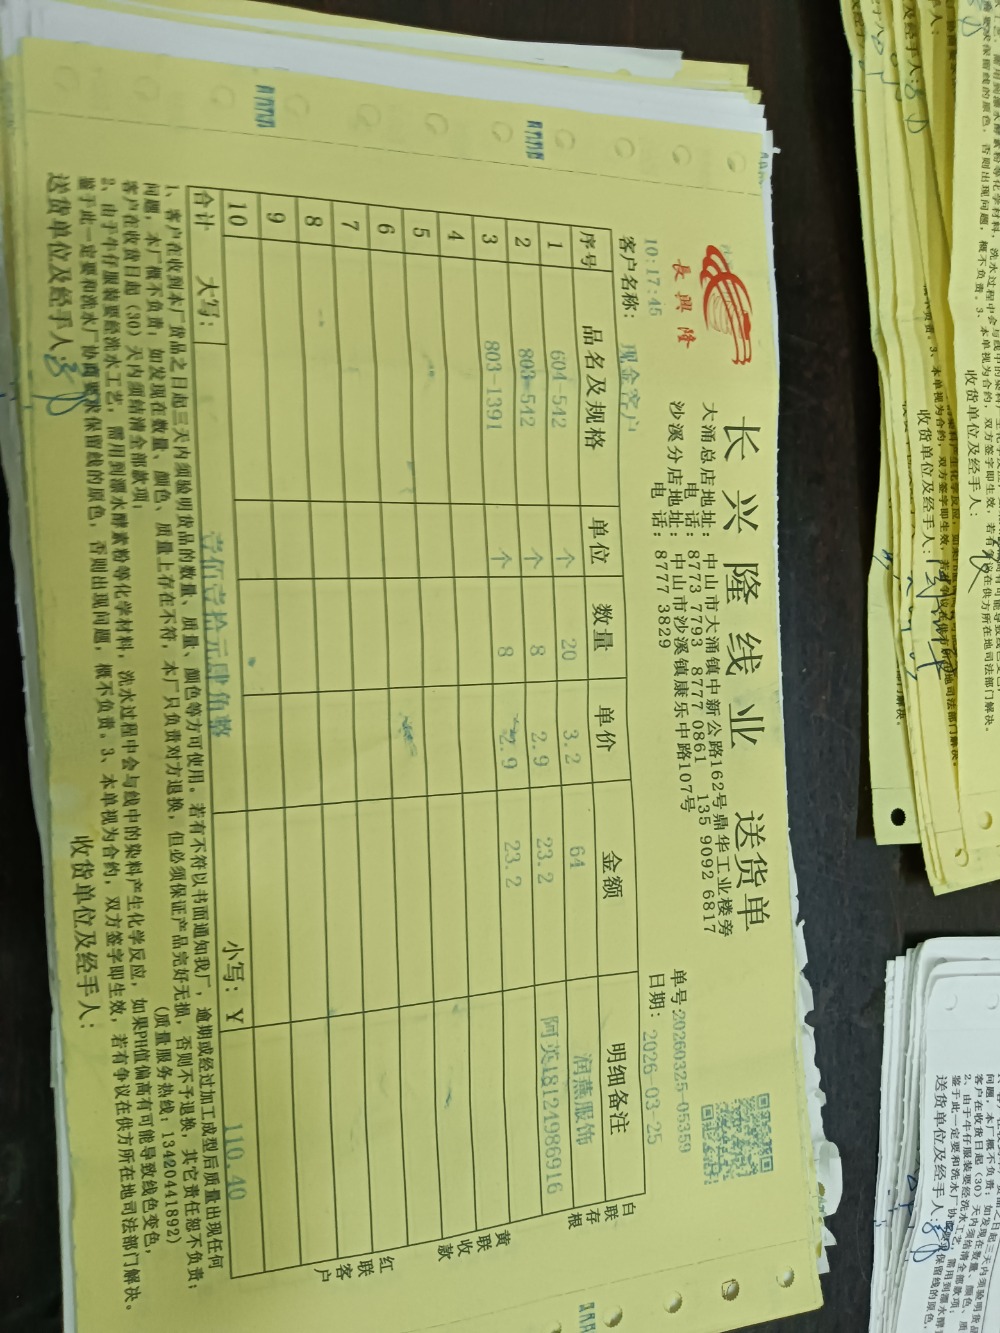 长兴隆线业 送货单
長興隆
大涌总店地址: 中山市大涌镇中新公路162号鼎华工业楼旁
电 话: 8773 7793 8777 0861 135 9092 6817
沙溪分店地址: 中山市沙溪镇康乐中路107号
电 话: 8777 3829
10:17:45
单号 20260325-05359
客户名称: 现金客户
日期: 2026-03-25
序号 品名及规格 单位 数量 单价 金额 明细备注
1 604-542 个 20 3.2 64 润燕服饰
2 803-542 个 8 2.9 23.2 阿英18124986916
3 803-1391 个 8 2.9 23.2
4
5
6
7
8
9
10
合计 大写: 壹佰壹拾元肆角整 小写: Y 110.40
白联存根
黄联收款
红联客户
1、客户在收到本厂货品之日起三天内须验明货品的数量、质量、颜色等方可使用。若有不符以书面通知我厂, 逾期或经过加工成型后质量出现任何
问题, 本厂概不负责; 如发现在数量、颜色、质量上存在不符, 本厂只负责对方退换, 但必须保证产品完好无损, 否则不予退换, 其它责任恕不负责;
客户在收货日起(30)天内须结清全部款项; (质量服务热线: 13420441892)
2、由于牛仔服装要经洗水工艺, 需用到漂水酵素粉等化学材料, 洗水过程中会与线中的染料产生化学反应, 如果PH值偏高有可能导致线色变色,
鉴于此一定要和洗水厂协商要求保留线的原色, 否则出现问题, 概不负责。3、本单视为合约, 双方签字即生效, 若有争议在供方所在地司法部门解决。
送货单位及经手人: 收货单位及经手人:
收货单位及经手人:
收货单位及经手人:
送货单位及经手人: